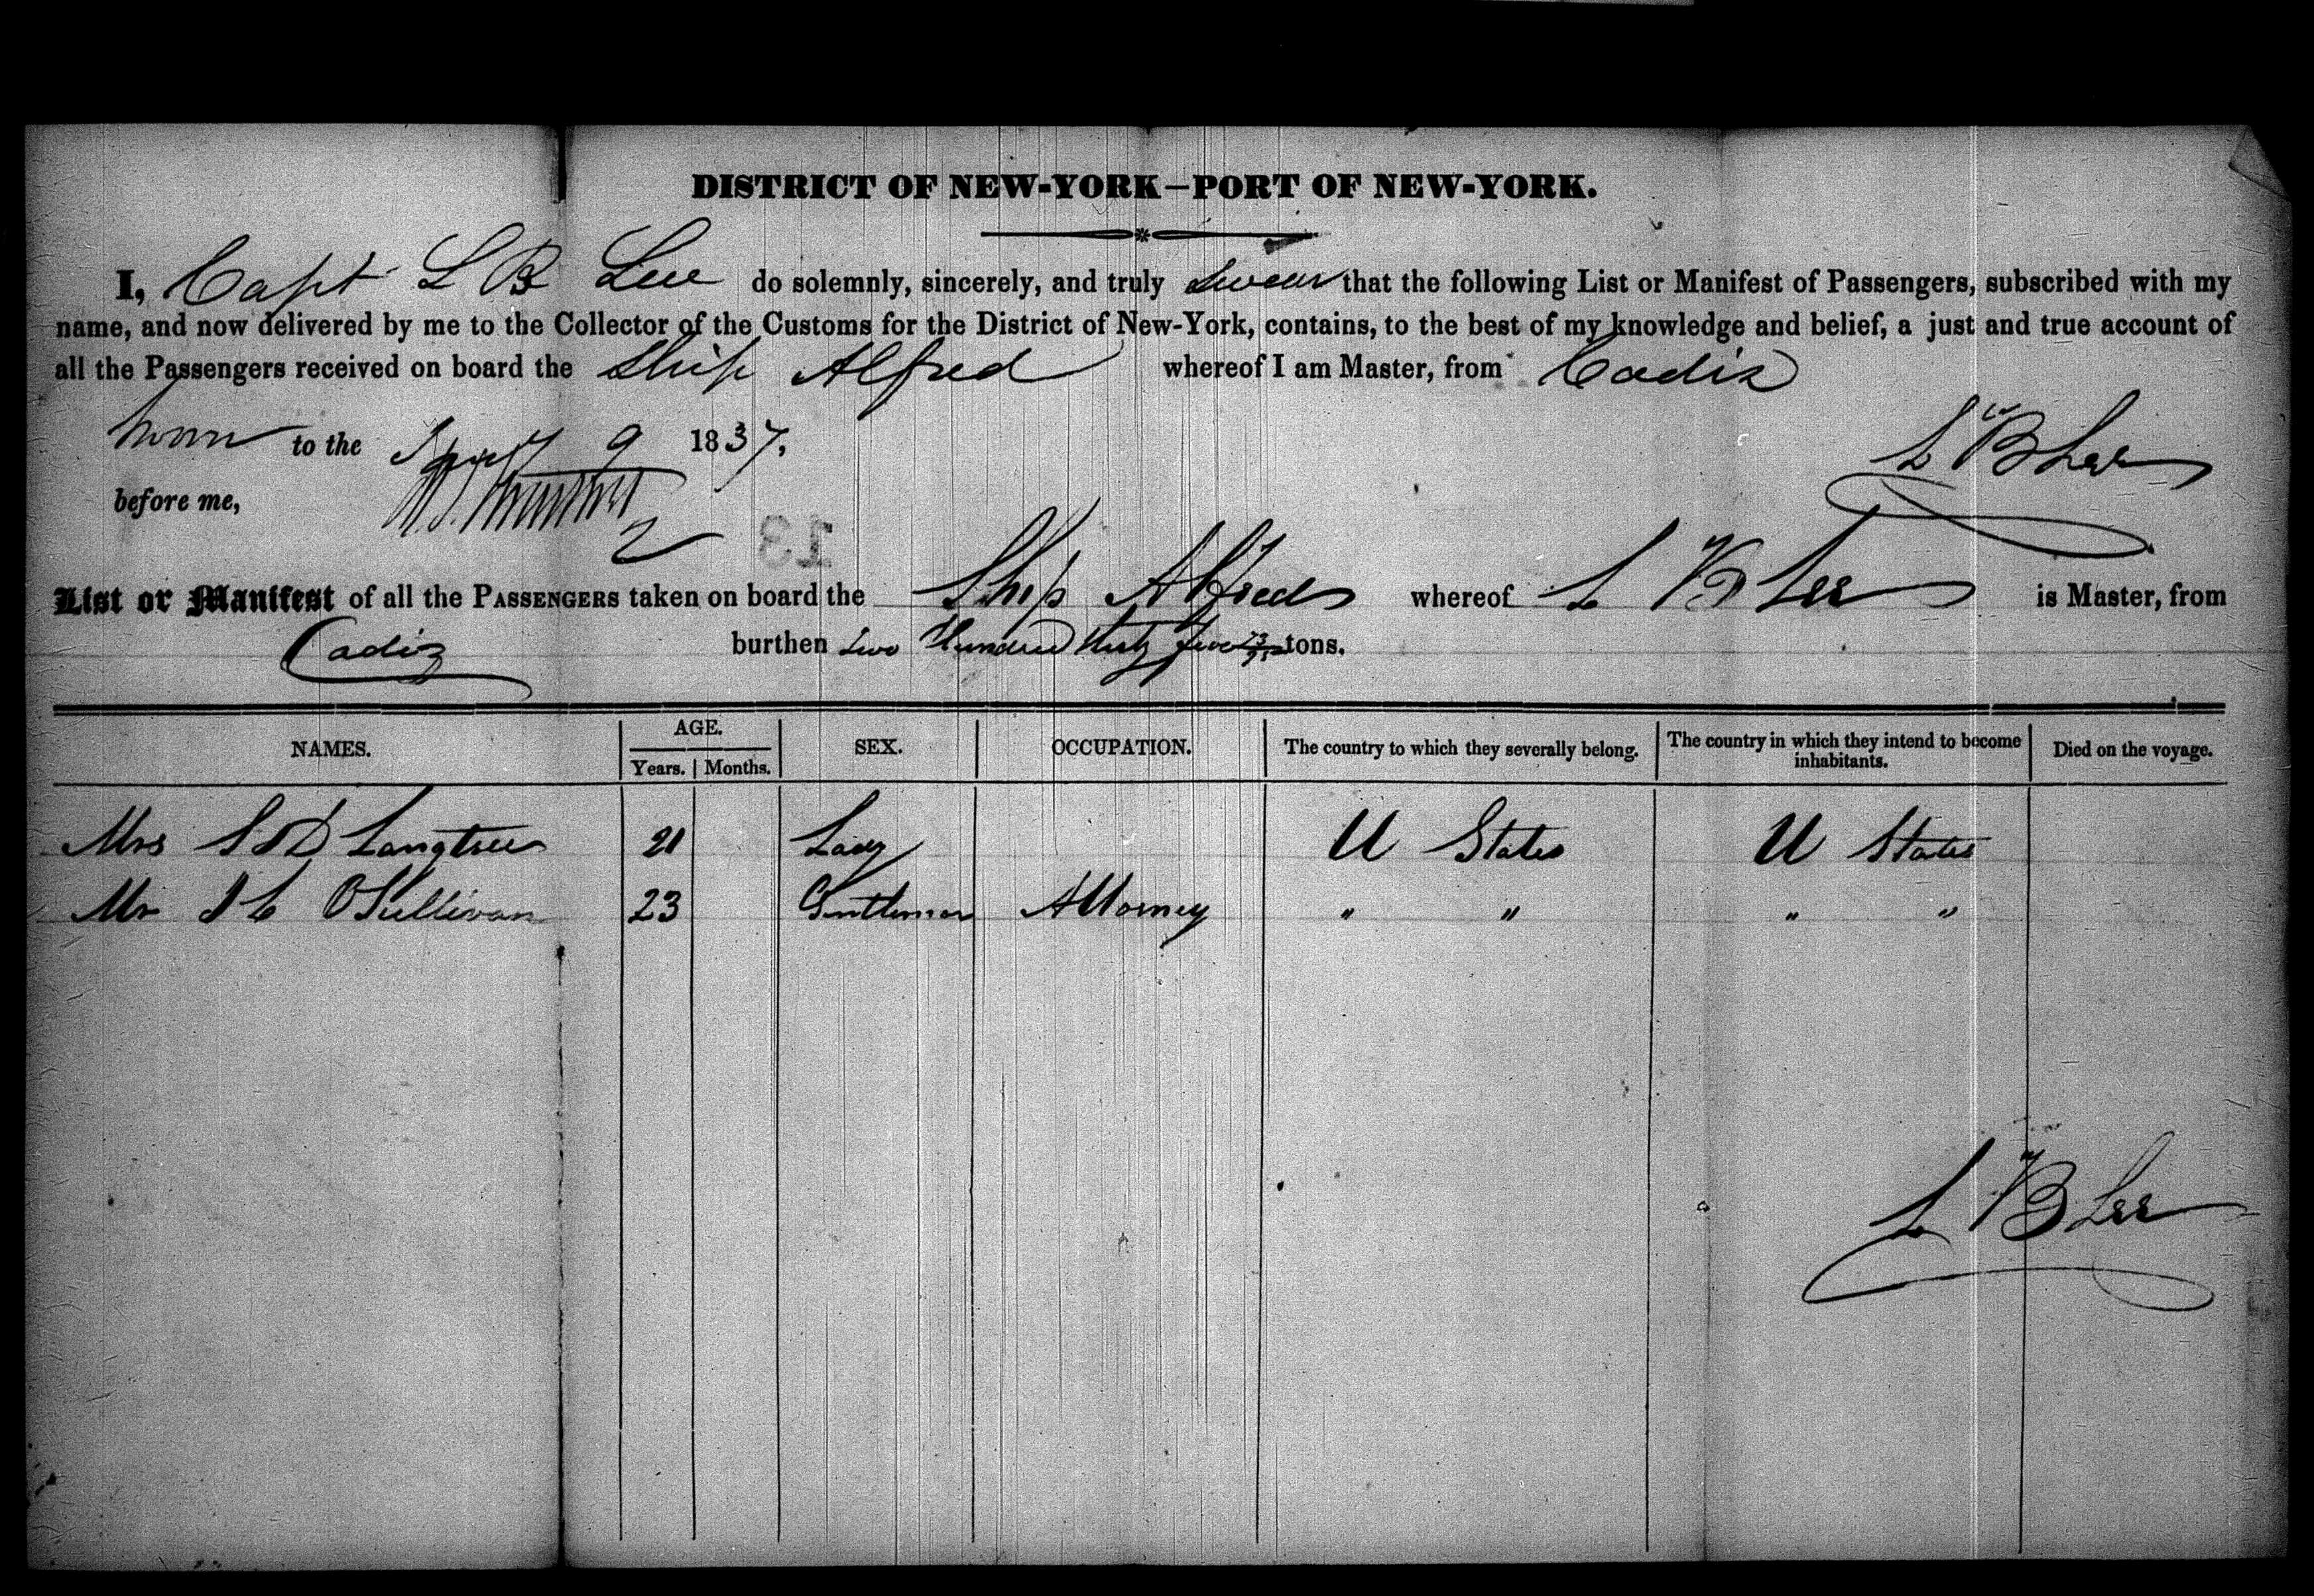 DISTRICT OF NEW-YORK—PORT OF NEW-YORK.
I, Capt L B Lee do solemnly, sincerely, and truly swear that the following List or Manifest of Passengers, subscribed with my
name, and now delivered by me to the Collector of the Customs for the District of New-York, contains, to the best of my knowledge and belief, a just and true account of
all the Passengers received on board the Ship Alfred whereof I am Master, from Cadiz
to the 9 1837.
L B Lee
before me,
2
13
List or Manifest of all the PASSENGERS taken on board the Ship Alfred whereof L B Lee is Master, from
Cadiz burthen two Hundred thirty five tons.
NAMES. AGE. SEX. OCCUPATION. The country to which they severally belong. The country in which they intend to become inhabitants. Died on the voyage.
Years. Months.
Mrs S D Langtree 21 Lady U States U States
Mr J L O'Sullivan 23 Gentleman Attorney " " " "
L B Lee